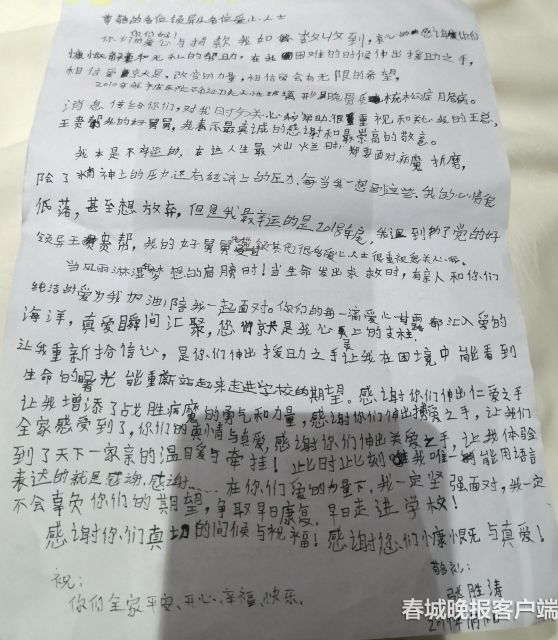 尊敬的各位领导及各位爱心人士
你们好!
你们的爱心与捐款我如数收到,衷心的感谢你们
慷慨解囊和无私的帮助,在我困难的时候伸出援助之手,
相信爱大是,改变的力量,相信爱会有无限的希望。
2010年
消息传给你们,对我的关心和帮助,很重视和关心我的王总,
王贵帮我的好舅舅,我表示最真诚的感谢和最崇高的敬意。
我本是不幸运的,在这人生最灿烂时,却要面对病魔折磨,
除了精神上的压力还有经济上的压力,每当我一想到这些,我的心情爱
低落,甚至想放弃,但是我最幸运的是2018年度,我遇到了党的好
领导王贵帮,我的好舅舅 其他很多爱心人士很重视和关心我。
当风雨淋湿梦想的肩膀时!当生命发出求救时,有亲人和你们
纯洁的爱为我加油!陪我一起面对。你们的每一滴爱心甘露都汇入爱的
海洋,真爱瞬间汇聚,您们就是我心灵上的支柱
让我重新拾信心,是你们伸出援助之手让我在困境中能看到
生命的曙光能重新站起来走进学校的期望。感谢你们伸出仁爱之手
让我增添了战胜病魔的勇气和力量,感谢你们伸出援爱之手,让我们
全家感受到了,你们的真情与真爱,感谢你们伸出关爱之手,让我体验
到了天下一家亲的温暖与牵挂!此时此刻我唯一能用语言
表达的就是感谢,感谢......在你们爱的力量下,我一定坚强面对,我一定
不会辜负你们的期望,争取早日康复,早日走进学校!
感谢你们真切的问候与祝福!感谢您们的慷慨与真爱!
敬礼:
祝: 张胜涛
你们全家平安、开心、幸福、快乐。
春城晚报客户端